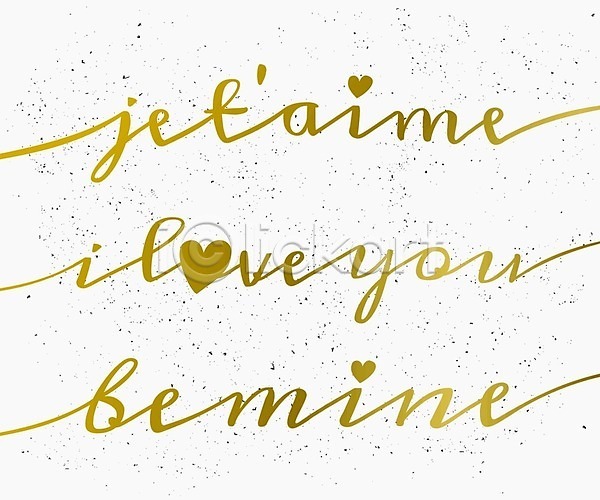 je t'aime
i love you
be mine
iclickart